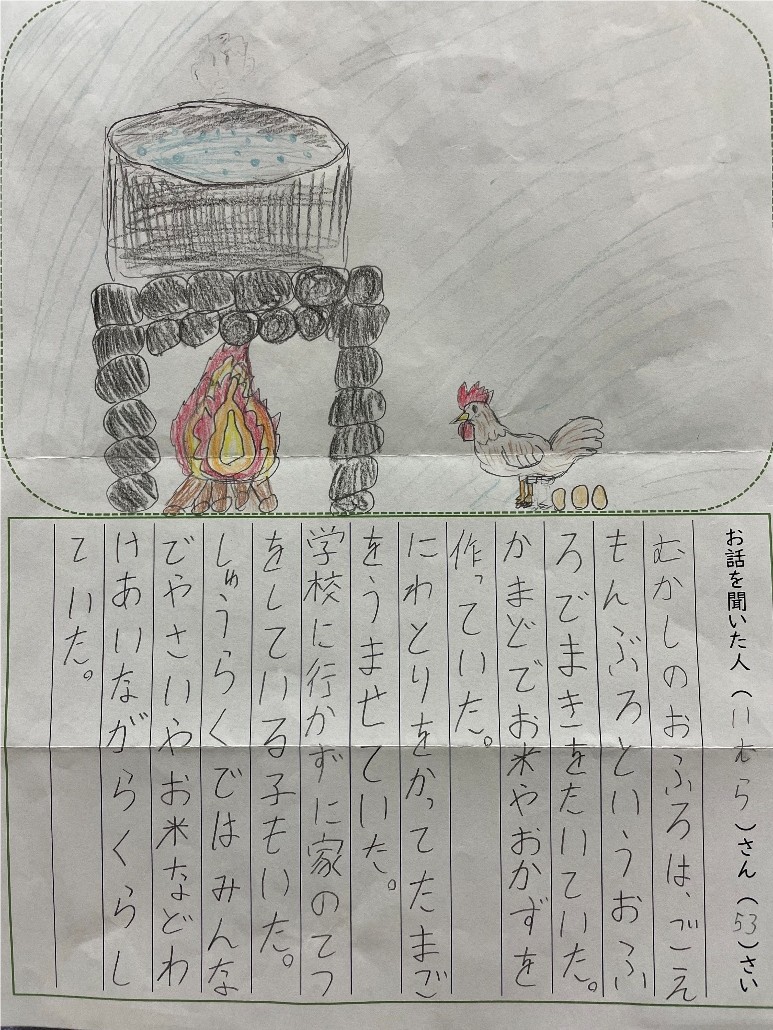 お話を聞いた人（ ）さん（53）さい
むかしのおふろは、ごえ
もんぶろというおふ
ろでまきをたいていた。
かまどでお米やおかずを
作っていた。
にわとりをかってたまご
をうませていた。
学校に行かずに家のてつ
をしている子もいた。
しゅうらくではみんな
でやさいやお米などわ
けあいながらくらし
ていた。